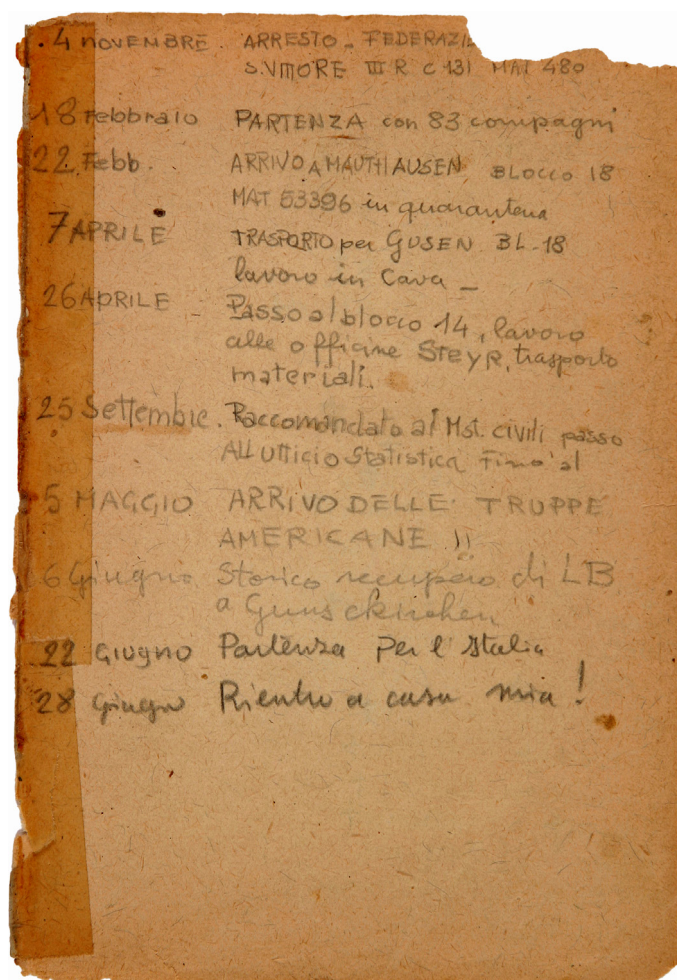 4 NOVEMBRE. ARRESTO - FEDERAZI
S.VITTORE III R C 131 MAT 480
18 Febbraio PARTENZA con 83 compagni
22 Febb. ARRIVO A MAUTHAUSEN BLOCCO 18
MAT 53396 in quarantena
7 APRILE TRASPORTO per GUSEN BL-18
lavoro in Cava -
26 APRILE - Passo al blocco 14, lavoro
alle officine STEYR, trasporto
materiali.
25 Settembre. Raccomandato ai Mst. civili passo
All ufficio Statistica fino al
5 MAGGIO ARRIVO DELLE TRUPPE
AMERICANE !!
6 Giugno Storico recupero di LB
a Gunskirchen
22 GIUGNO Partenza per l'Italia
28 Giugno Rientro a casa mia!